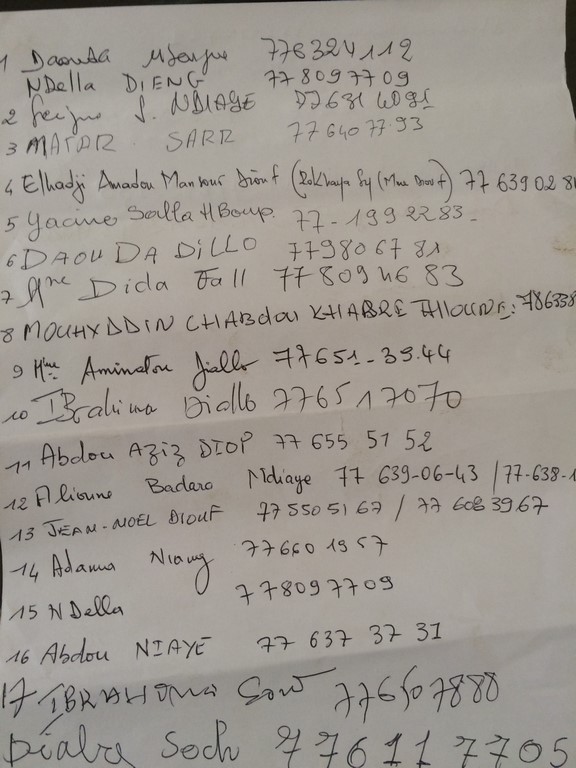 1 Daouda 776324112
NDella DIENG 778097709
2 S. NDIAYE
3 MATAR SARR 776407793
4 Elhadji Amadou Mansour Diouf (Rokhaya Sy (Mme Diouf) 77 639 02
5 Yacine 77-199 22 83-
6 DAOUDA DiLLO 77980 67 81
7 Mme Dida Fall 77 809 46 83
8 MOUHYDDIN CHABdou KHABRE THIOUNE: 786338
9 Mme Aminatou Diallo 77651-39.44
10 IBrahima Diallo 776517070
11 Abdou AZiZ DIOP 77 655 51 52
12 Alioune Badara Ndiaye 77 639-06-43 / 77-638-1
13 JEAN-NOEL DIOUF 77 550 51 67 / 77 608 39 67
14 Adama Niang 77660 19 57
15 NDella 778097709
16 Abdou NIAYE 77 637 37 31
17 IBRAHIMA Sow 776507888
Diabra Soch 776117705